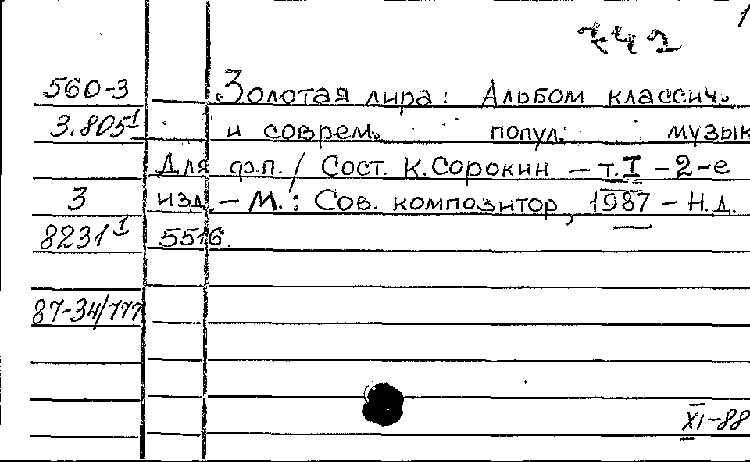 1
442
560-3 Золотая лира: Альбом классич.
3.805¹ и соврем. попул. музык
Для ф.п. / Сост. К. Сорокин – т. I – 2-е
3 изд. – М.: Сов. композитор, 1987 – Н.д.
8231¹ 5516.
87-34/777
XI-88